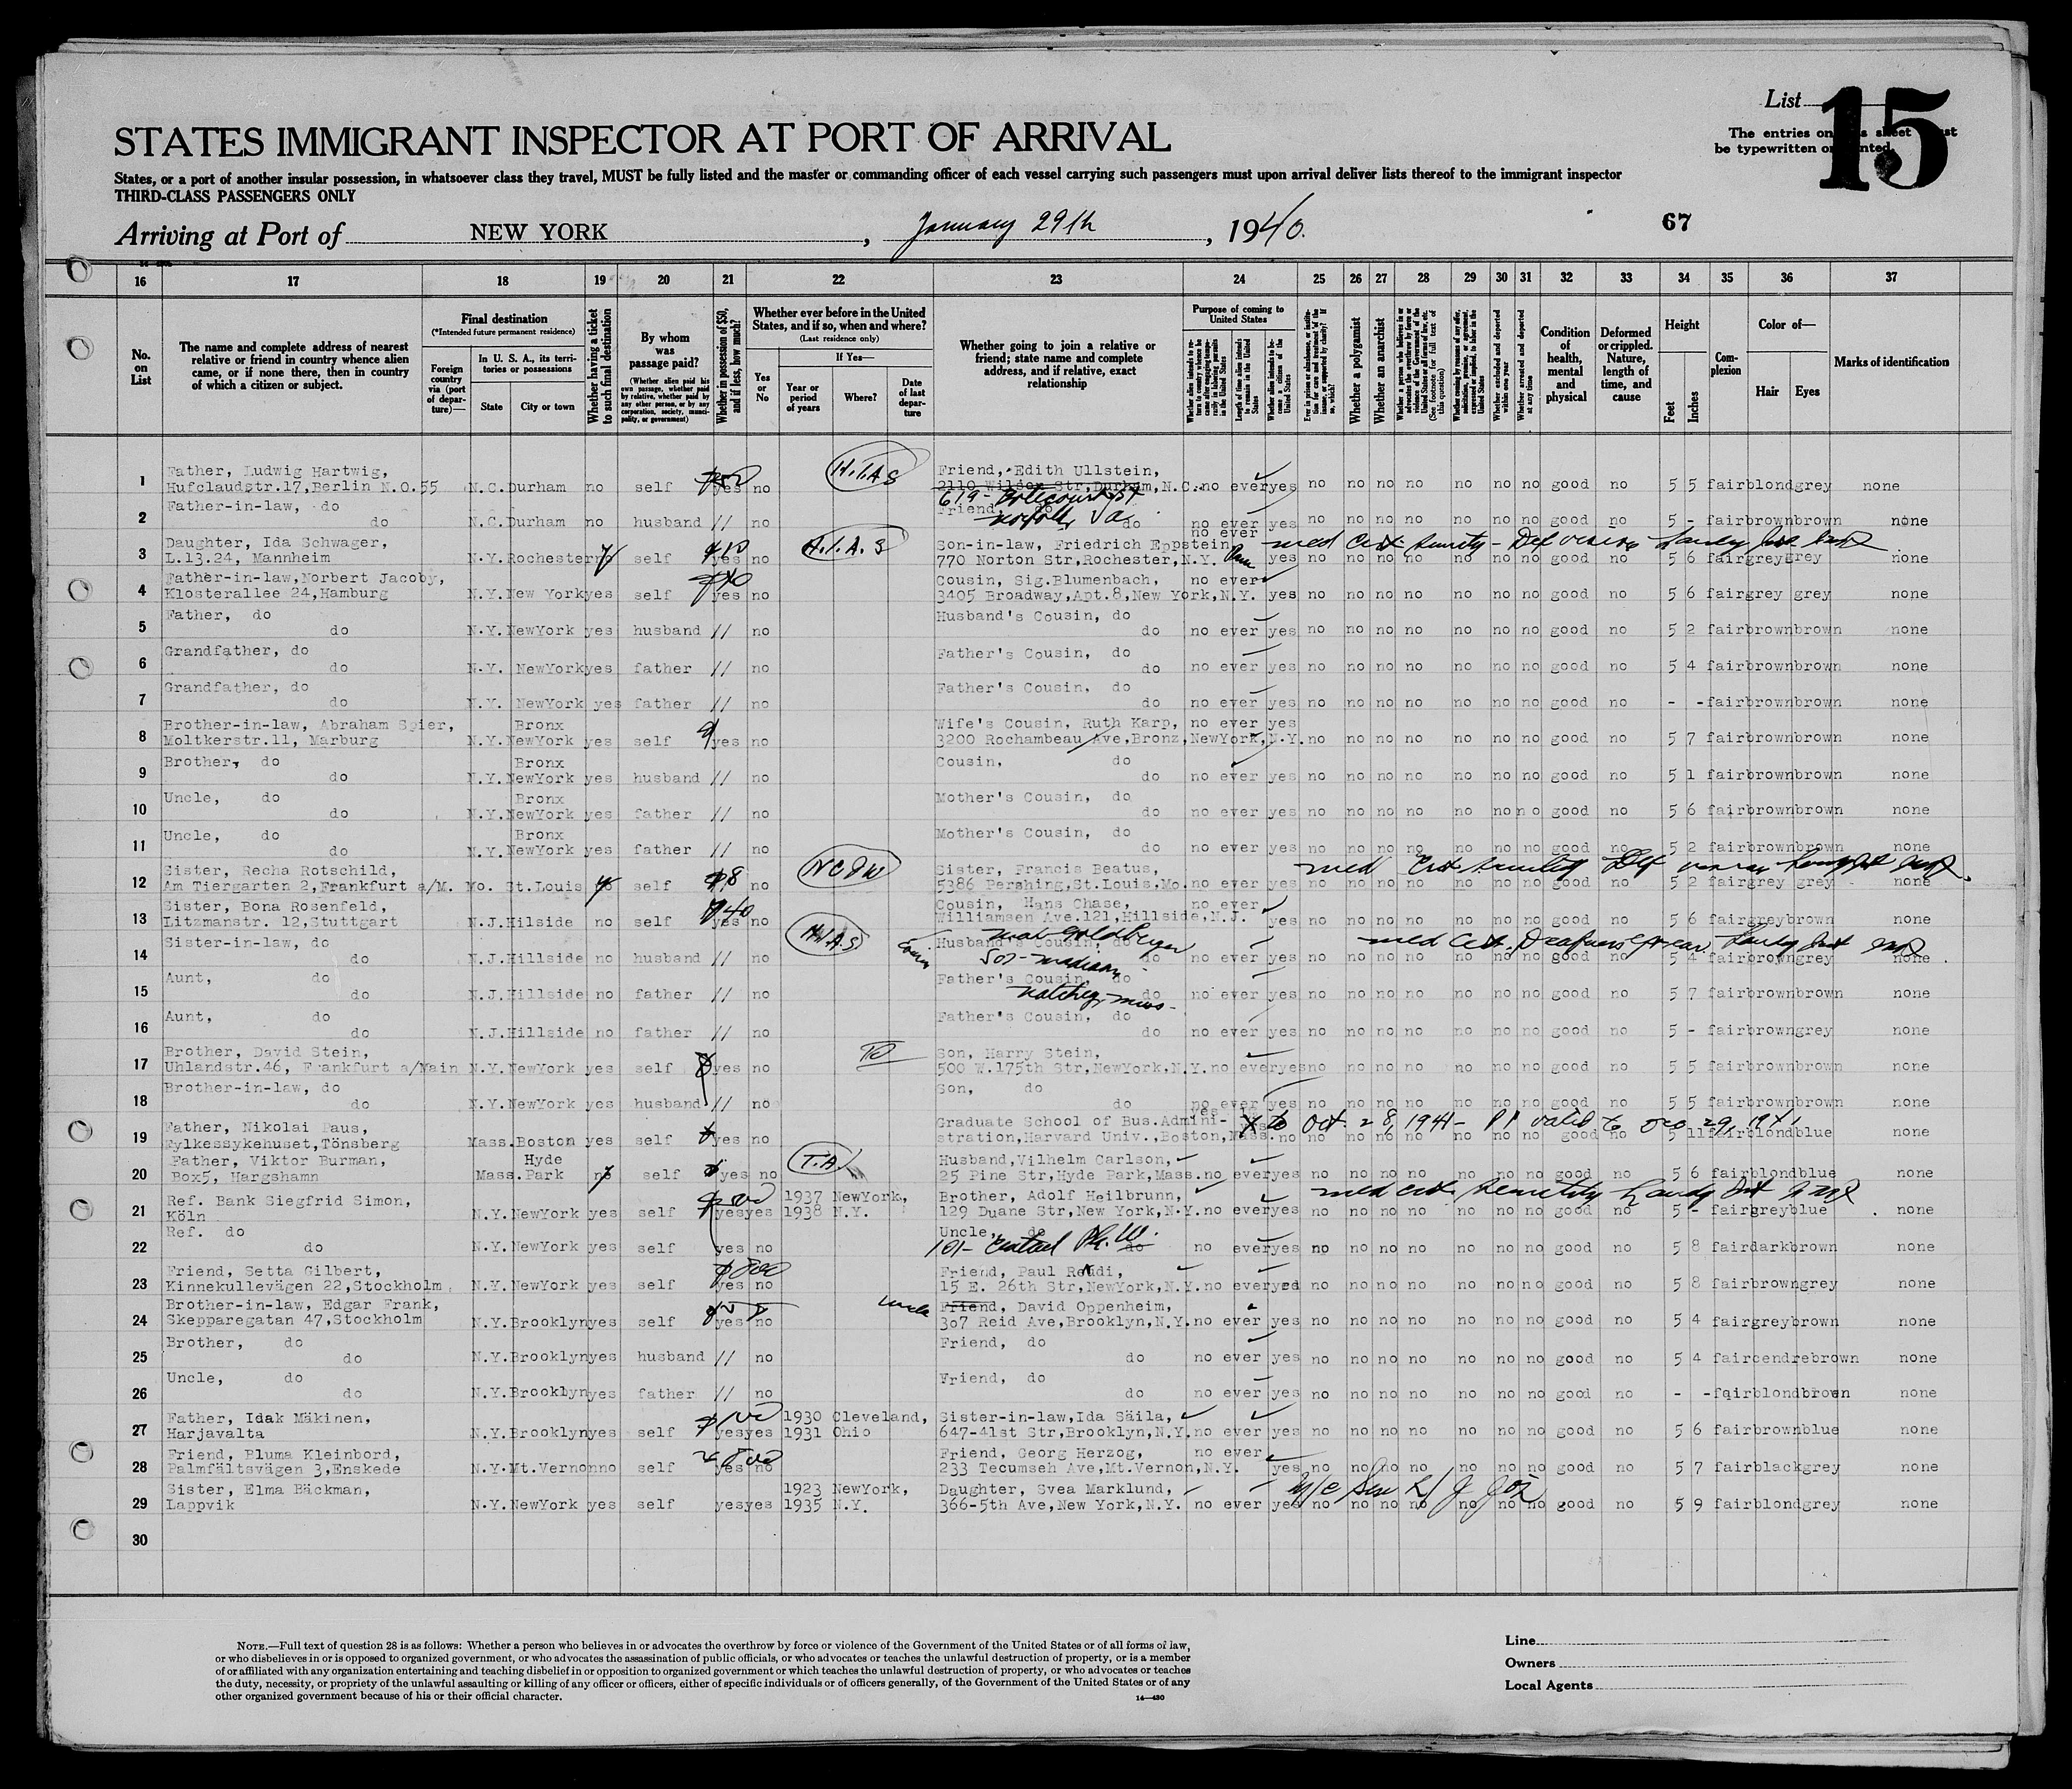 List 15
STATES IMMIGRANT INSPECTOR AT PORT OF ARRIVAL
The entries on sheet
be typewritten or
States, or a port of another insular possession, in whatsoever class they travel, MUST be fully listed and the master or commanding officer of each vessel carrying such passengers must upon arrival deliver lists thereof to the immigrant inspector
THIRD-CLASS PASSENGERS ONLY
Arriving at Port of NEW YORK, January 29th, 1940.
67
16 17 18 19 20 21 22 23 24 25 26 27 28 29 30 31 32 33 34 35 36 37
No. on List
The name and complete address of nearest relative or friend in country whence alien came, or if none there, then in country of which a citizen or subject.
Final destination
(*Intended future permanent residence)
Foreign country via (port of departure)—
In U. S. A., its territories or possessions
State City or town
Whether having a ticket to such final destination
By whom was passage paid?
(Whether alien paid his own passage, whether paid by relative, whether paid by any other person, or by any corporation, society, municipality, or government)
Whether in possession of $50, and if less, how much?
Whether ever before in the United States, and if so, when and where?
(Last residence only)
Yes or No
If Yes—
Year or period of years
Where?
Date of last departure
Whether going to join a relative or friend; state name and complete address, and if relative, exact relationship
Purpose of coming to United States
Whether a polygamist
Whether an anarchist
Whether excluded and deported within one year
Whether arrested and deported at any time
Condition of health, mental and physical
Deformed or crippled. Nature, length of time, and cause
Height
Feet Inches
Complexion
Color of—
Hair Eyes
Marks of identification
1 Father, Ludwig Hartwig, H.I.A.S Friend, Edith Ullstein,
Hufclaudstr.17,Berlin N.O.55 N.C.Durham no self yes no 2110 Wilden Str,Durham,N.C. no ever yes no no no no no no no good no 5 5 fair blond grey none
619-
2 Father-in-law, do Friend, do
do N.C.Durham no husband // no Norfolk, Va. do no ever yes no no no no no no no good no 5 - fair brown brown none
3 Daughter, Ida Schwager, $10 H.I.A.S Son-in-law, Friedrich Eppstein no ever
L.13.24, Mannheim N.Y.Rochester no self yes no 770 Norton Str,Rochester,N.Y. yes no no no no no no no good no 5 6 fair grey grey none
4 Father-in-law,Norbert Jacoby, $40 Cousin, Sig.Blumenbach, no ever
Klosterallee 24,Hamburg N.Y.New York yes self yes no 3405 Broadway,Apt.8,New York,N.Y. yes no no no no no no no good no 5 6 fair grey grey none
5 Father, do Husband's Cousin, do
do N.Y.NewYork yes husband // no do no ever yes no no no no no no no good no 5 2 fair brown brown none
6 Grandfather, do Father's Cousin, do
do N.Y. NewYork yes father // no do no ever yes no no no no no no no good no 5 4 fair brown brown none
7 Grandfather, do Father's Cousin, do
do N.Y. NewYork yes father // no do no ever yes no no no no no no no good no - - fair brown brown none
8 Brother-in-law, Abraham Spier, Bronx Wife's Cousin, Ruth Karp, no ever yes
Moltkerstr.11, Marburg N.Y.NewYork yes self yes no 3200 Rochambeau Ave,Bronz,NewYork,N.Y. no no no no no no no good no 5 7 fair brown brown none
9 Brother, do Bronx Cousin, do
do N.Y.NewYork yes husband // no do no ever yes no no no no no no no good no 5 1 fair brown brown none
10 Uncle, do Bronx Mother's Cousin, do
do N.Y.NewYork yes father // no do no ever yes no no no no no no no good no 5 6 fair brown brown none
11 Uncle, do Bronx Mother's Cousin, do
do N.Y.NewYork yes father // no do no ever yes no no no no no no no good no 5 2 fair brown brown none
12 Sister, Recha Rotschild, $8 Sister, Francis Beatus,
Am Tiergarten 2,Frankfurt a/M. Mo. St.Louis self no 5386 Pershing,St.Louis,Mo. no ever yes no no no no no no no good no 5 2 fair grey grey none
13 Sister, Bona Rosenfeld, $40 Cousin, Hans Chase, no ever
Litzmanstr. 12,Stuttgart N.J.Hilside no self yes no Williamsen Ave.121,Hillside,N.J. yes no no no no no no no good no 5 6 fair grey brown none
14 Sister-in-law, do H.I.A.S. Cousin Husband's Cousin, do Goldberger
do N.J.Hillside no husband // no do no ever yes no no no no no no no good no 5 4 fair brown grey none
15 Aunt, do Father's Cousin, do
do N.J.Hillside no father // no Natchez, Miss. do no ever yes no no no no no no no good no 5 7 fair brown brown none
16 Aunt, do Father's Cousin, do
do N.J.Hillside no father // no do no ever yes no no no no no no no good no 5 - fair brown grey none
17 Brother, David Stein, Son, Harry Stein,
Uhlandstr.46, Frankfurt a/Main N.Y.NewYork yes self yes no 500 W.175th Str,NewYork,N.Y. no ever yes no no no no no no no good no 5 5 fair brown brown none
18 Brother-in-law, do Son, do
do N.Y.NewYork yes husband // no do no ever yes no no no no no no no good no 5 5 fair brown brown none
19 Father, Nikolai Paus, Graduate School of Bus.Admini- to Oct. 28, 1941- PP valid to Dec 29, 1941,
Fylkessykehuset,Tönsberg Mass.Boston yes self yes no stration,Harvard Univ.,Boston,Mass. no no no no no no no good no 5 11 fair blond blue none
20 Father, Viktor Burman, Hyde T.A. Husband,Vilhelm Carlson,
Box5, Hargshamn Mass.Park no self yes no 25 Pine Str,Hyde Park,Mass. no ever yes no no no no no no no good no 5 6 fair blond blue none
21 Ref. Bank Siegfrid Simon, 1937 NewYork, Brother, Adolf Heilbrunn,
Köln N.Y.NewYork yes self yes yes 1938 N.Y. 129 Duane Str,New York,N.Y. no ever yes no no no no no no no good no 5 - fair grey blue none
22 Ref. do Uncle, do
do N.Y.NewYork yes self yes no 101- Central Pk. W. do no ever yes no no no no no no no good no 5 8 fair dark brown none
23 Friend, Setta Gilbert, $800 Friend, Paul Reudi,
Kinnekullevägen 22,Stockholm N.Y.NewYork yes self yes no 15 E. 26th Str,NewYork,N.Y. no ever yes no no no no no no no good no 5 8 fair brown grey none
24 Brother-in-law, Edgar Frank, Uncle Friend, David Oppenheim,
Skepparegatan 47,Stockholm N.Y.Brooklyn yes self yes no 307 Reid Ave,Brooklyn,N.Y. no ever yes no no no no no no no good no 5 4 fair grey brown none
25 Brother, do Friend, do
do N.Y.Brooklyn yes husband // no do no ever yes no no no no no no no good no 5 4 fair cendre brown none
26 Uncle, do Friend, do
do N.Y.Brooklyn yes father // no do no ever yes no no no no no no no good no - - fair blond brown none
27 Father, Idak Mäkinen, $100 1930 Cleveland, Sister-in-law,Ida Säila,
Harjavalta N.Y.Brooklyn yes self yes yes 1931 Ohio 647-41st Str,Brooklyn,N.Y. no ever yes no no no no no no no good no 5 6 fair brown blue none
28 Friend, Bluma Kleinbord, Friend, Georg Herzog, no ever
Palmfältsvägen 3,Enskede N.Y.Mt.Vernon no self yes no 233 Tecumseh Ave,Mt.Vernon,N.Y. yes no no no no no no no good no 5 7 fair black grey none
29 Sister, Elma Bäckman, 1923 NewYork, Daughter, Svea Marklund,
Lappvik N.Y.NewYork yes self yes yes 1935 N.Y. 366-5th Ave,New York,N.Y. no ever yes no no no no no no no good no 5 9 fair blond grey none
30
NOTE.—Full text of question 28 is as follows: Whether a person who believes in or advocates the overthrow by force or violence of the Government of the United States or of all forms of law,
or who disbelieves in or is opposed to organized government, or who advocates the assassination of public officials, or who advocates or teaches the unlawful destruction of property, or is a member
of or affiliated with any organization entertaining and teaching disbelief in or opposition to organized government or which teaches the unlawful destruction of property, or who advocates or teaches
the duty, necessity, or propriety of the unlawful assaulting or killing of any officer or officers, either of specific individuals or of officers generally, of the Government of the United States or of any
other organized government because of his or their official character.
14—430
Line
Owners
Local Agents